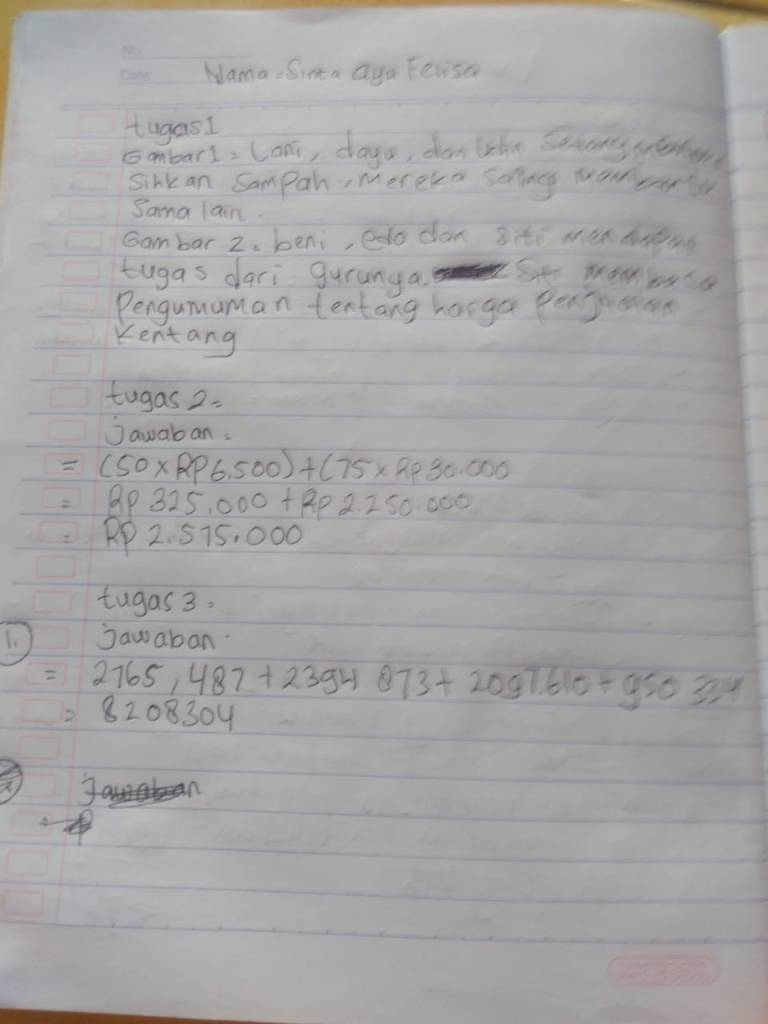 No.
Date
Nama = Sinta aya Felisa
tugas 1
Gambar 1 = Lani, dayu, dan
Sihkan Sampah, Mereka Saling
Sama lain.
Gambar 2 = beni, edo dan Siti
tugas dari gurunya. Siti
Pengumuman tentang harga
Kentang
tugas 2 =
jawaban =
= (50 x Rp 6.500) + (75 x Rp 30.000
= Rp 325.000 + Rp 2.250.000
= Rp 2.575.000
tugas 3 =
1. jawaban.
= 2765,487 + 2394 873 + 2097.610 + 950 334
= 8208304